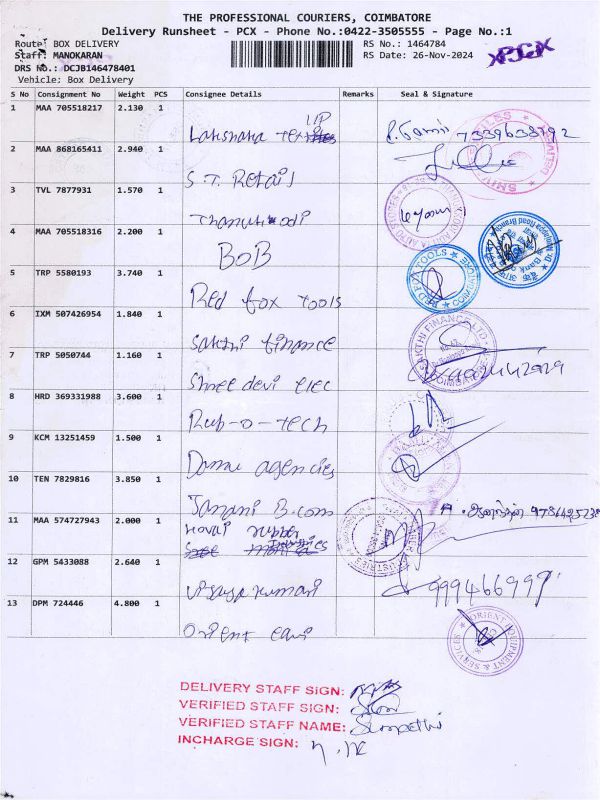 THE PROFESSIONAL COURIERS, COIMBATORE
Delivery Runsheet - PCX - Phone No.:0422-3505555 - Page No.:1
Route: BOX DELIVERY
RS No.: 1464784
PCX
Staff: MANOKARAN
RS Date: 26-Nov-2024
DRS No.: DCJB146478401
Vehicle: Box Delivery
S No Consignment No Weight PCS Consignee Details Remarks Seal & Signature
1 MAA 705518217 2.130 1
Lakshaka Tex UP 7339638792
2 MAA 868165411 2.940 1
S.T. Retail
3 TVL 7877931 1.570 1
4 MAA 705518316 2.200 1
BOB
5 TRP 5580193 3.740 1
Red fox tools RED FOX TOOLS
6 IXM 507426954 1.840 1
Sakthi finance SAKTHI FINANCE LTD COIMBATORE
7 TRP 5050744 1.160 1
Shree devi elec
8 HRD 369331988 3.600 1
Rub-o-tech
9 KCM 13251459 1.500 1
agencies
10 TEN 7829816 3.850 1
Janani B.com
11 MAA 574727943 2.000 1
Kovai rubber
Industries
12 GPM 5433088 2.640 1
Vijaya kumari 999466999
13 DPM 724446 4.800 1
Orient ORIENT EQUIPMENT & SERVICES
DELIVERY STAFF SIGN:
VERIFIED STAFF SIGN:
VERIFIED STAFF NAME: Sumathi
INCHARGE SIGN: